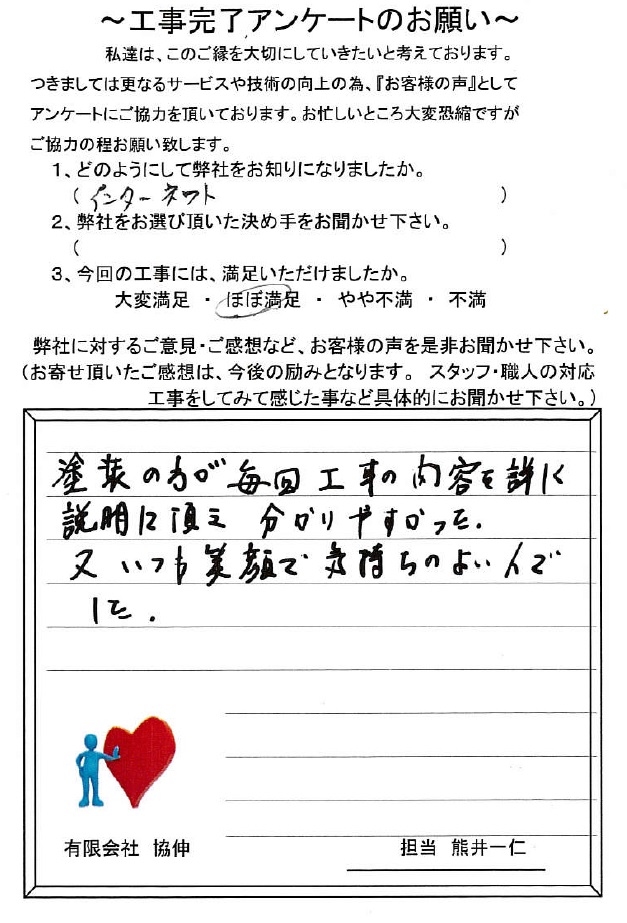 ～工事完了アンケートのお願い～
私達は、このご縁を大切にしていきたいと考えております。
つきましては更なるサービスや技術の向上の為、『お客様の声』として
アンケートにご協力を頂いております。お忙しいところ大変恐縮ですが
ご協力の程お願い致します。
1、どのようにして弊社をお知りになりましたか。
（インターネット）
2、弊社をお選び頂いた決め手をお聞かせ下さい。
（ ）
3、今回の工事には、満足いただけましたか。
大変満足 ・ ほぼ満足 ・ やや不満 ・ 不満
弊社に対するご意見・ご感想など、お客様の声を是非お聞かせ下さい。
（お寄せ頂いたご感想は、今後の励みとなります。 スタッフ・職人の対応
工事をしてみて感じた事など具体的にお聞かせ下さい。）
塗装の方が毎回工事の内容を詳しく
説明に頂き 分かりやすかった.
又いつも笑顔で気持ちのよい人で
した.
有限会社 協伸
担当 熊井一仁